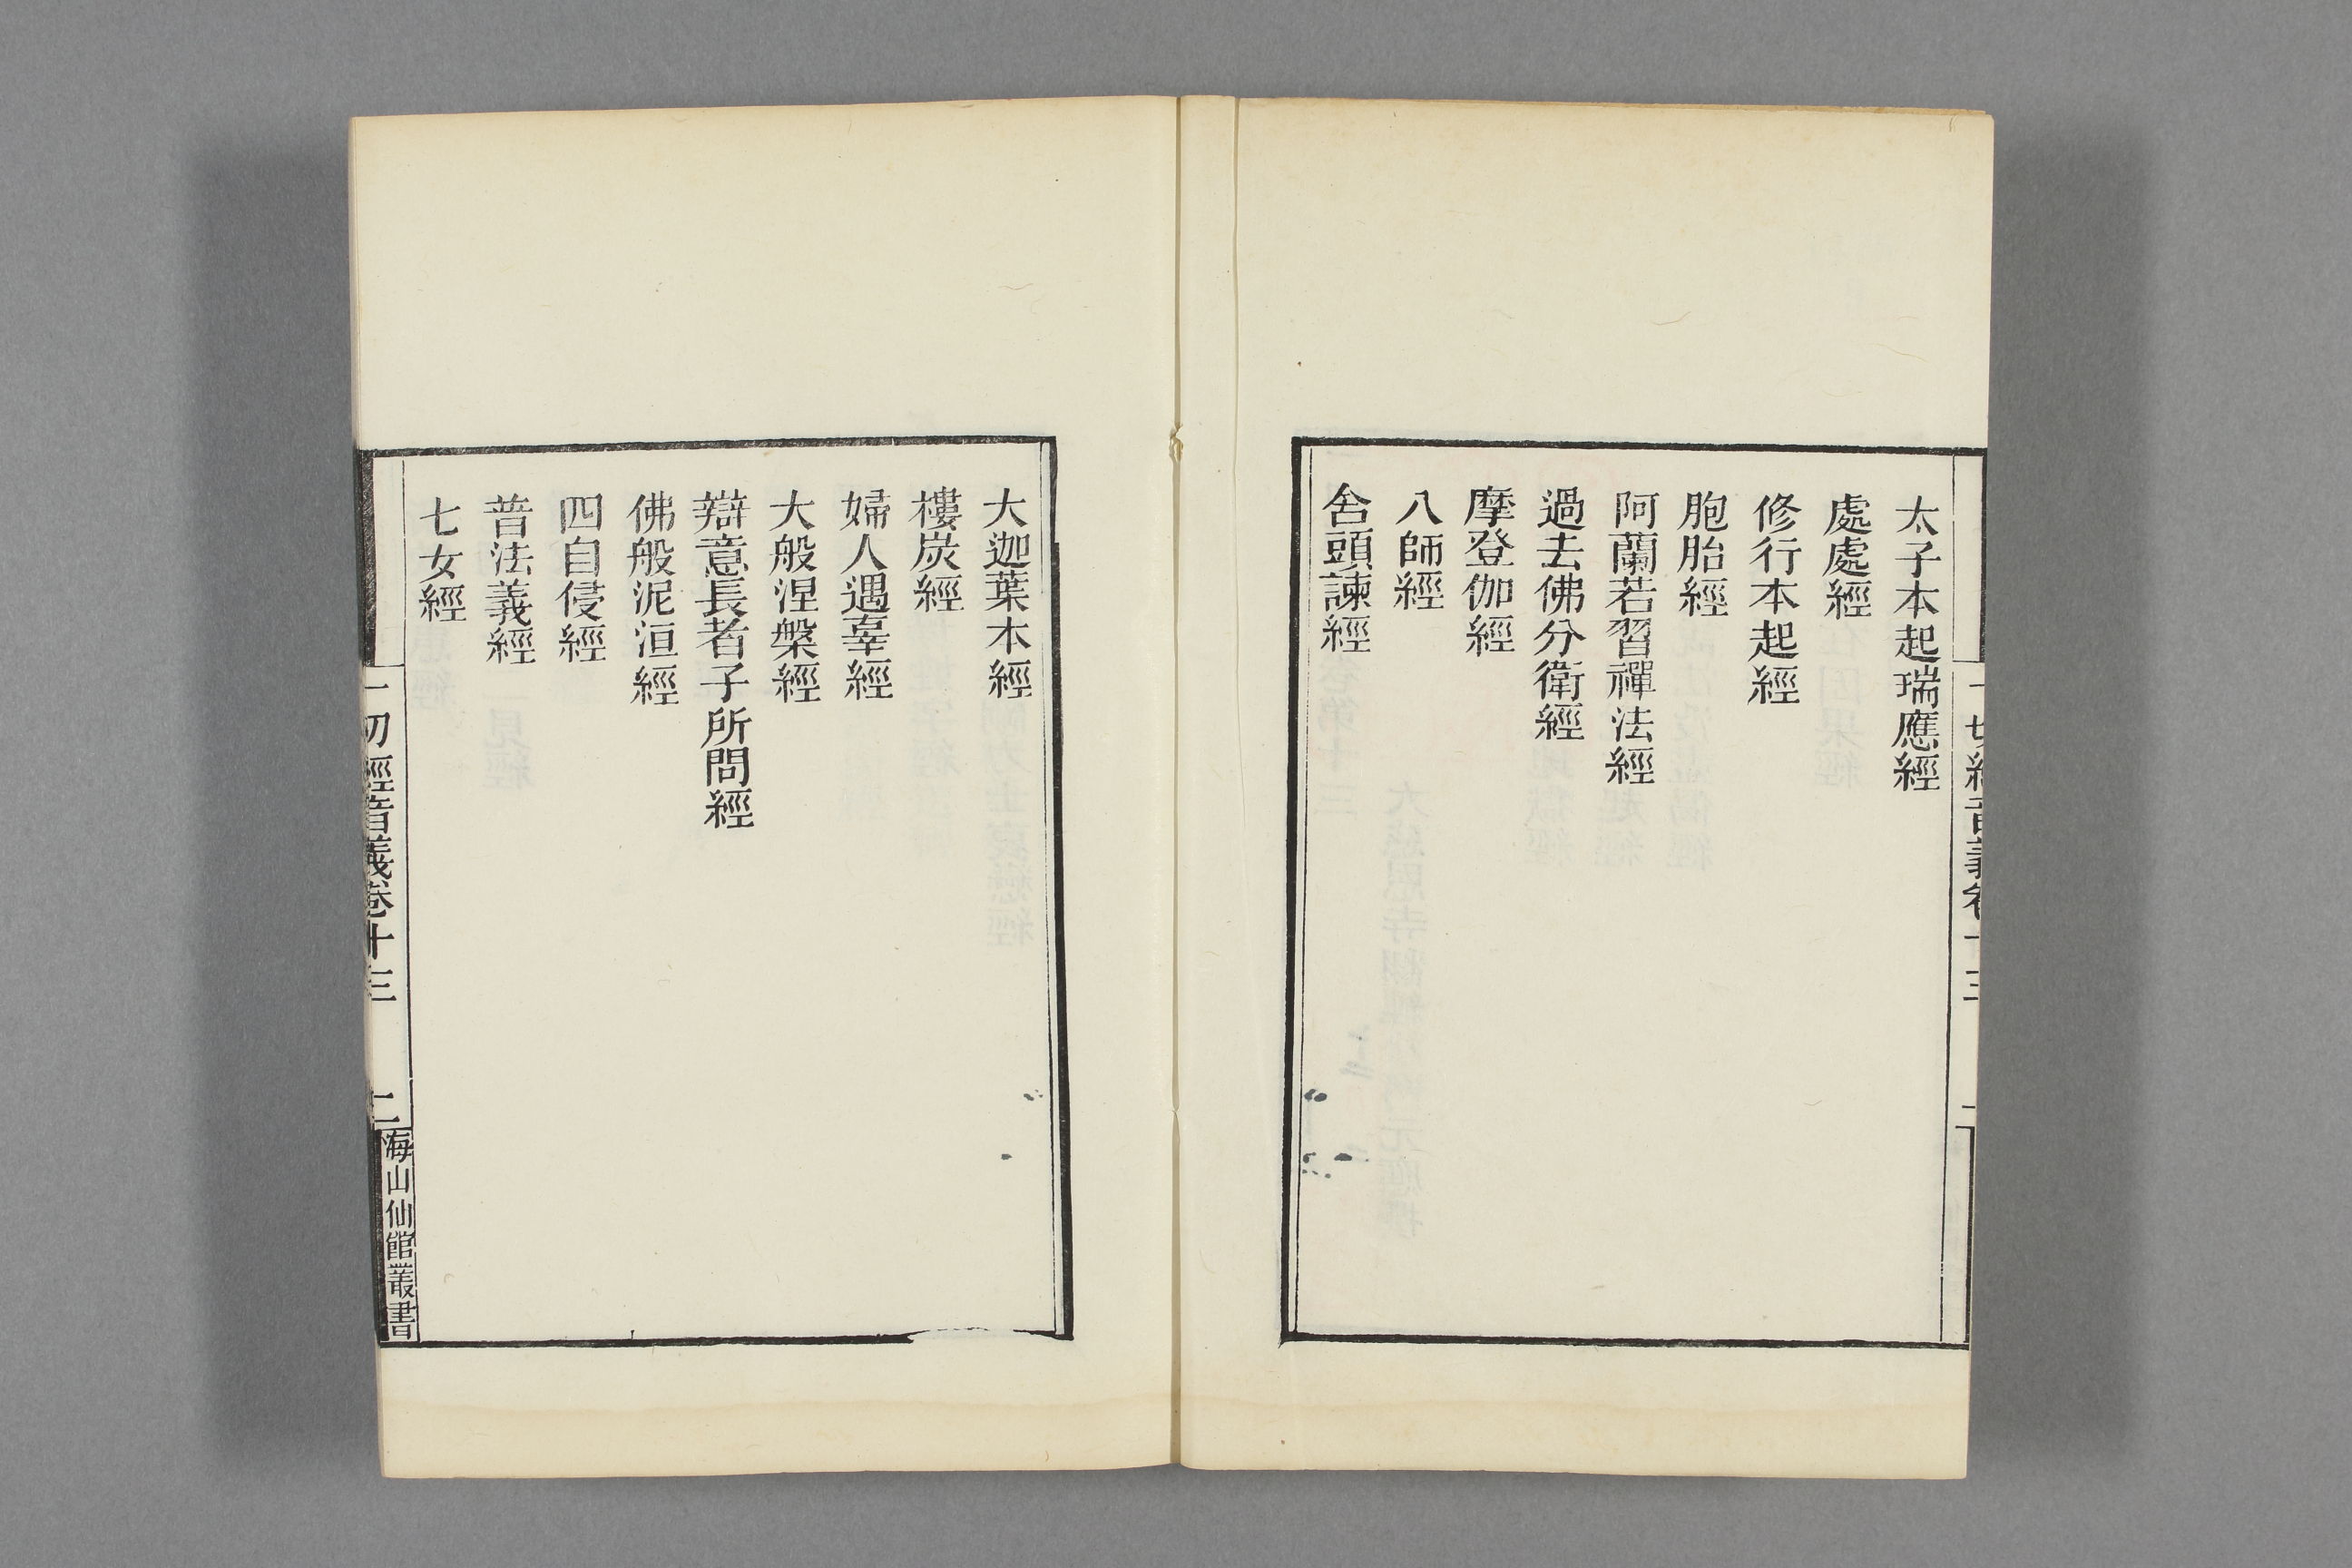 太子本起瑞應經
處處經
修行本起經
胞胎經
阿蘭若習禪法經
過去佛分衛經
摩登伽經
八師經
舍頭諫經
大迦葉本經
樓炭經
婦人遇辜經
大般涅槃經
辯意長者子所問經
佛般泥洹經
四自侵經
普法義經
七女經
一切經音義卷十三
二
海山仙館叢書